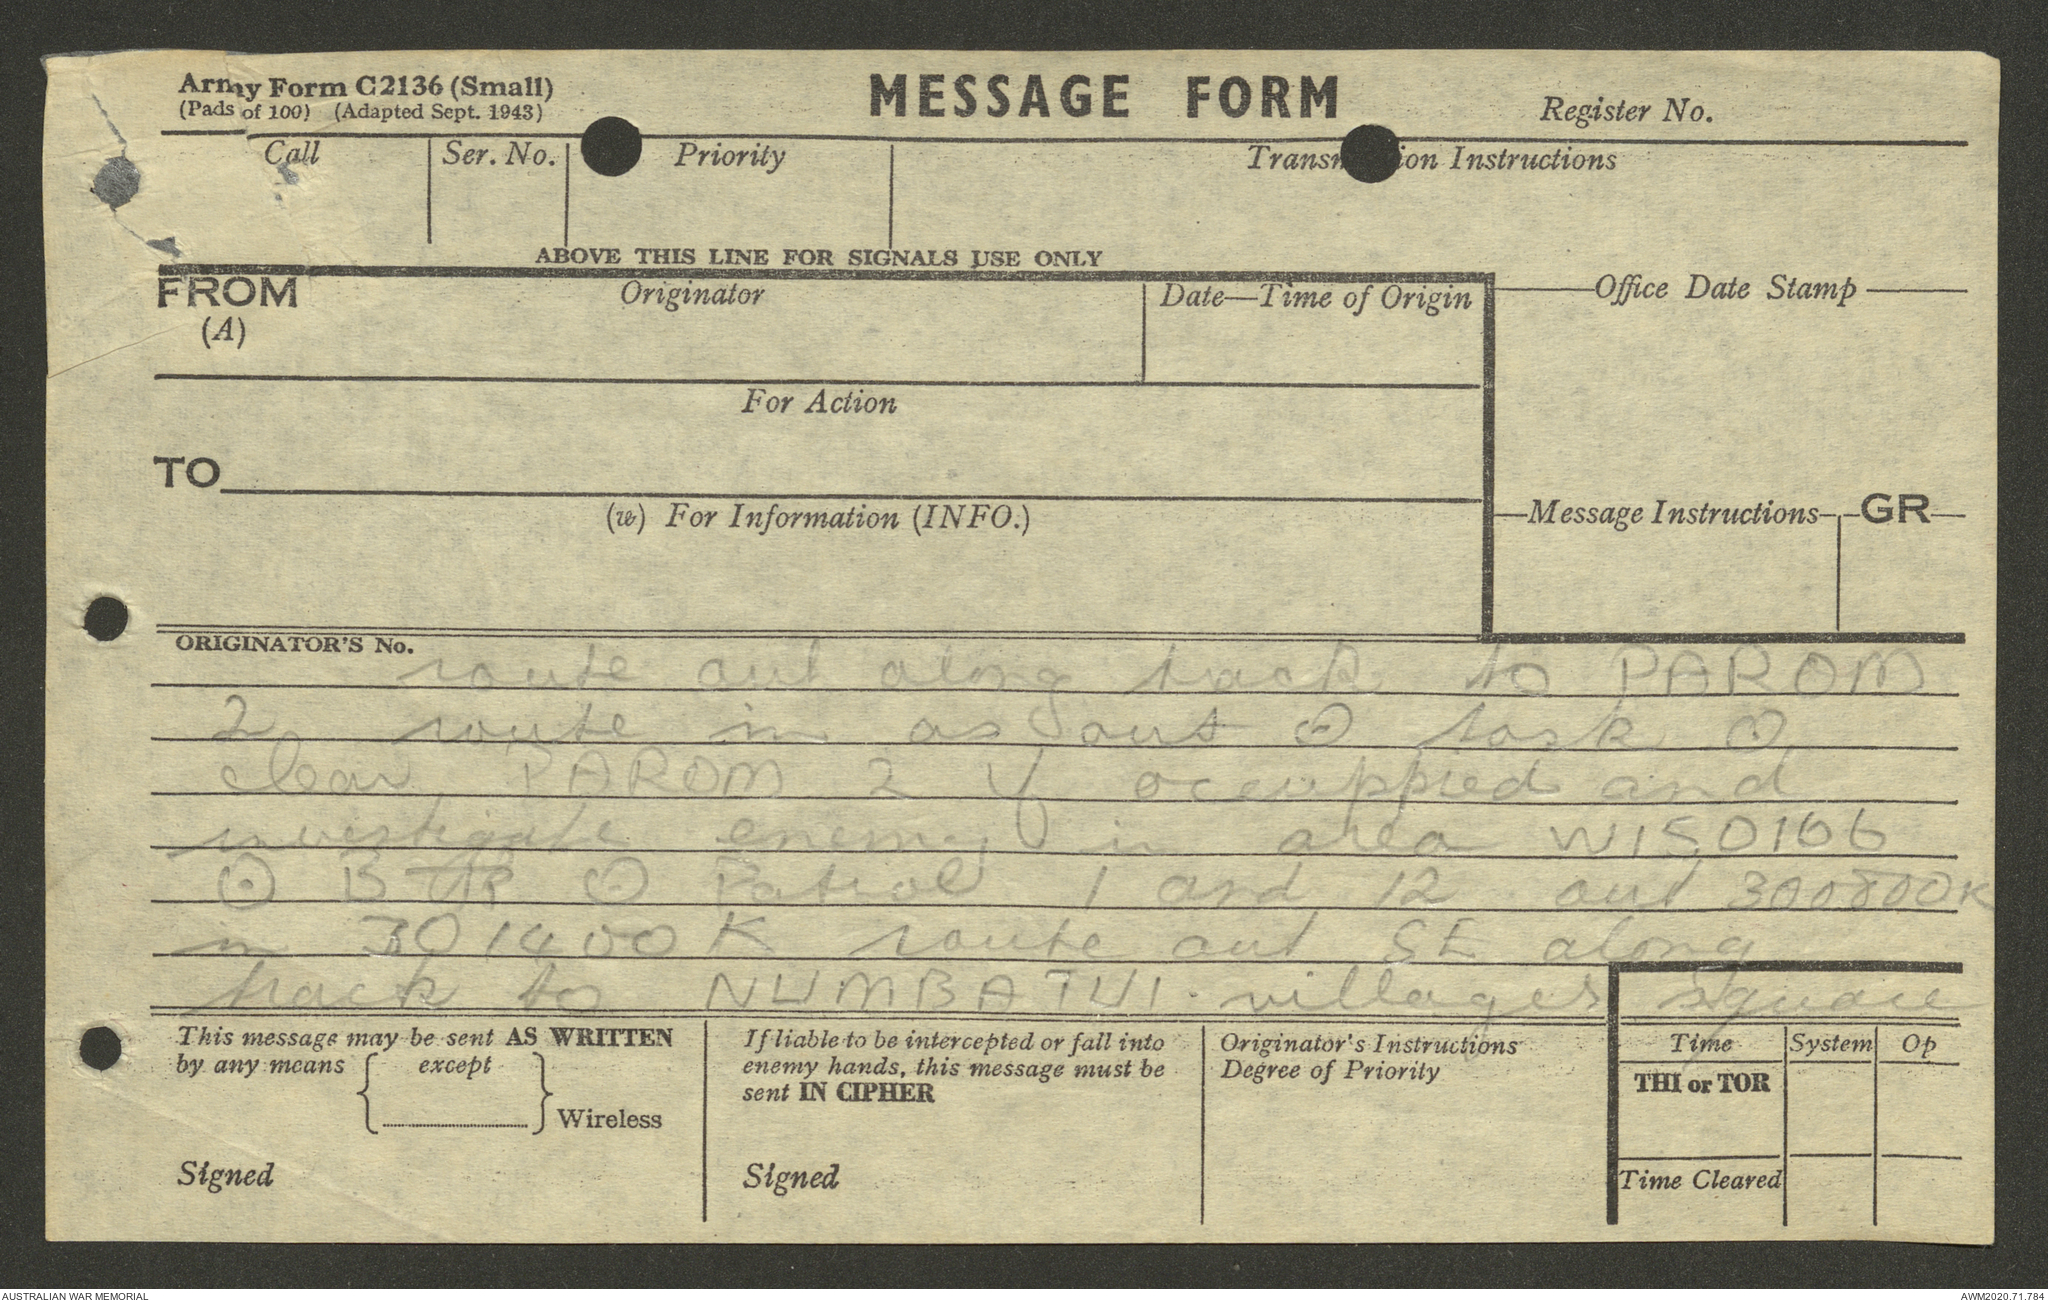 Army Form C2136 (Small)
(Pads of 100) (Adapted Sept. 1943)
MESSAGE FORM
Register No.
Call Ser. No. Priority Transmission Instructions
ABOVE THIS LINE FOR SIGNALS USE ONLY
FROM Originator Date—Time of Origin Office Date Stamp
(A)
For Action
TO
(w) For Information (INFO.) Message Instructions GR
ORIGINATOR'S No.
route out along track to PAROM
2 route in as out ⊙ task ⊙
clear PAROM 2 if occuppied and
investigate enemy in area W150166
⊙ B TP ⊙ Patrol 1 and 12 out 300800K
in 301400K route out SE along
track to NUMBATUI. villages square
This message may be sent AS WRITTEN
by any means { except } Wireless
Signed
If liable to be intercepted or fall into
enemy hands, this message must be
sent IN CIPHER
Signed
Originator's Instructions
Degree of Priority
Time System Op
THI or TOR
Time Cleared
AUSTRALIAN WAR MEMORIAL
AWM2020.71.784